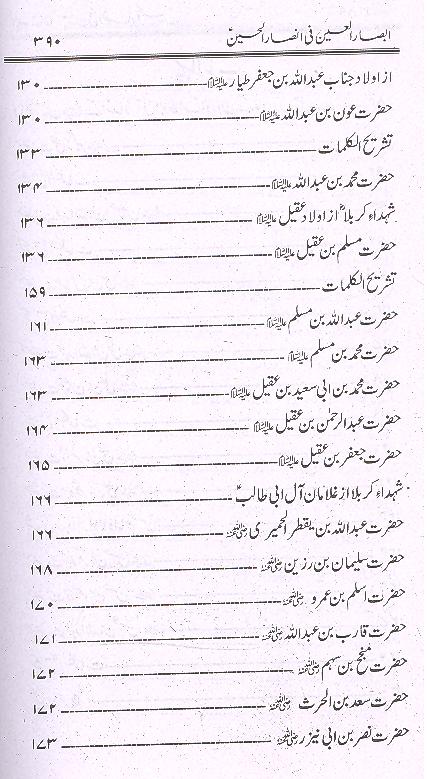 ابصار العین فی انصار الحسینؑ ۳۹۰
از اولاد جناب عبداللہ بن جعفر طیار علیہ السلام ۱۳۰
حضرت عون بن عبداللہ علیہ السلام ۱۳۰
تشریح الکلمات ۱۳۳
حضرت محمد بن عبداللہ علیہ السلام ۱۳۴
شہداء کربلاؑ از اولاد عقیل علیہ السلام ۱۳۶
حضرت مسلم بن عقیل علیہ السلام ۱۳۶
تشریح الکلمات ۱۵۹
حضرت عبداللہ بن مسلم علیہ السلام ۱۶۱
حضرت محمد بن مسلم علیہ السلام ۱۶۳
حضرت محمد بن ابی سعید بن عقیل علیہ السلام ۱۶۳
حضرت عبدالرحمٰن بن عقیل علیہ السلام ۱۶۴
حضرت جعفر بن عقیل علیہ السلام ۱۶۵
شہداء کربلا از غلامان آل ابی طالبؑ ۱۶۶
حضرت عبداللہ بن یقطر الحمیری رضی اللہ عنہ ۱۶۶
حضرت سلیمان بن رزین رضی اللہ عنہ ۱۶۸
حضرت اسلم بن عمرو رضی اللہ عنہ ۱۷۰
حضرت قارب بن عبداللہ رضی اللہ عنہ ۱۷۱
حضرت منجح بن سہم رضی اللہ عنہ ۱۷۲
حضرت سعد بن الحرث رضی اللہ عنہ ۱۷۲
حضرت نصر بن ابی نیزر رضی اللہ عنہ ۱۷۳